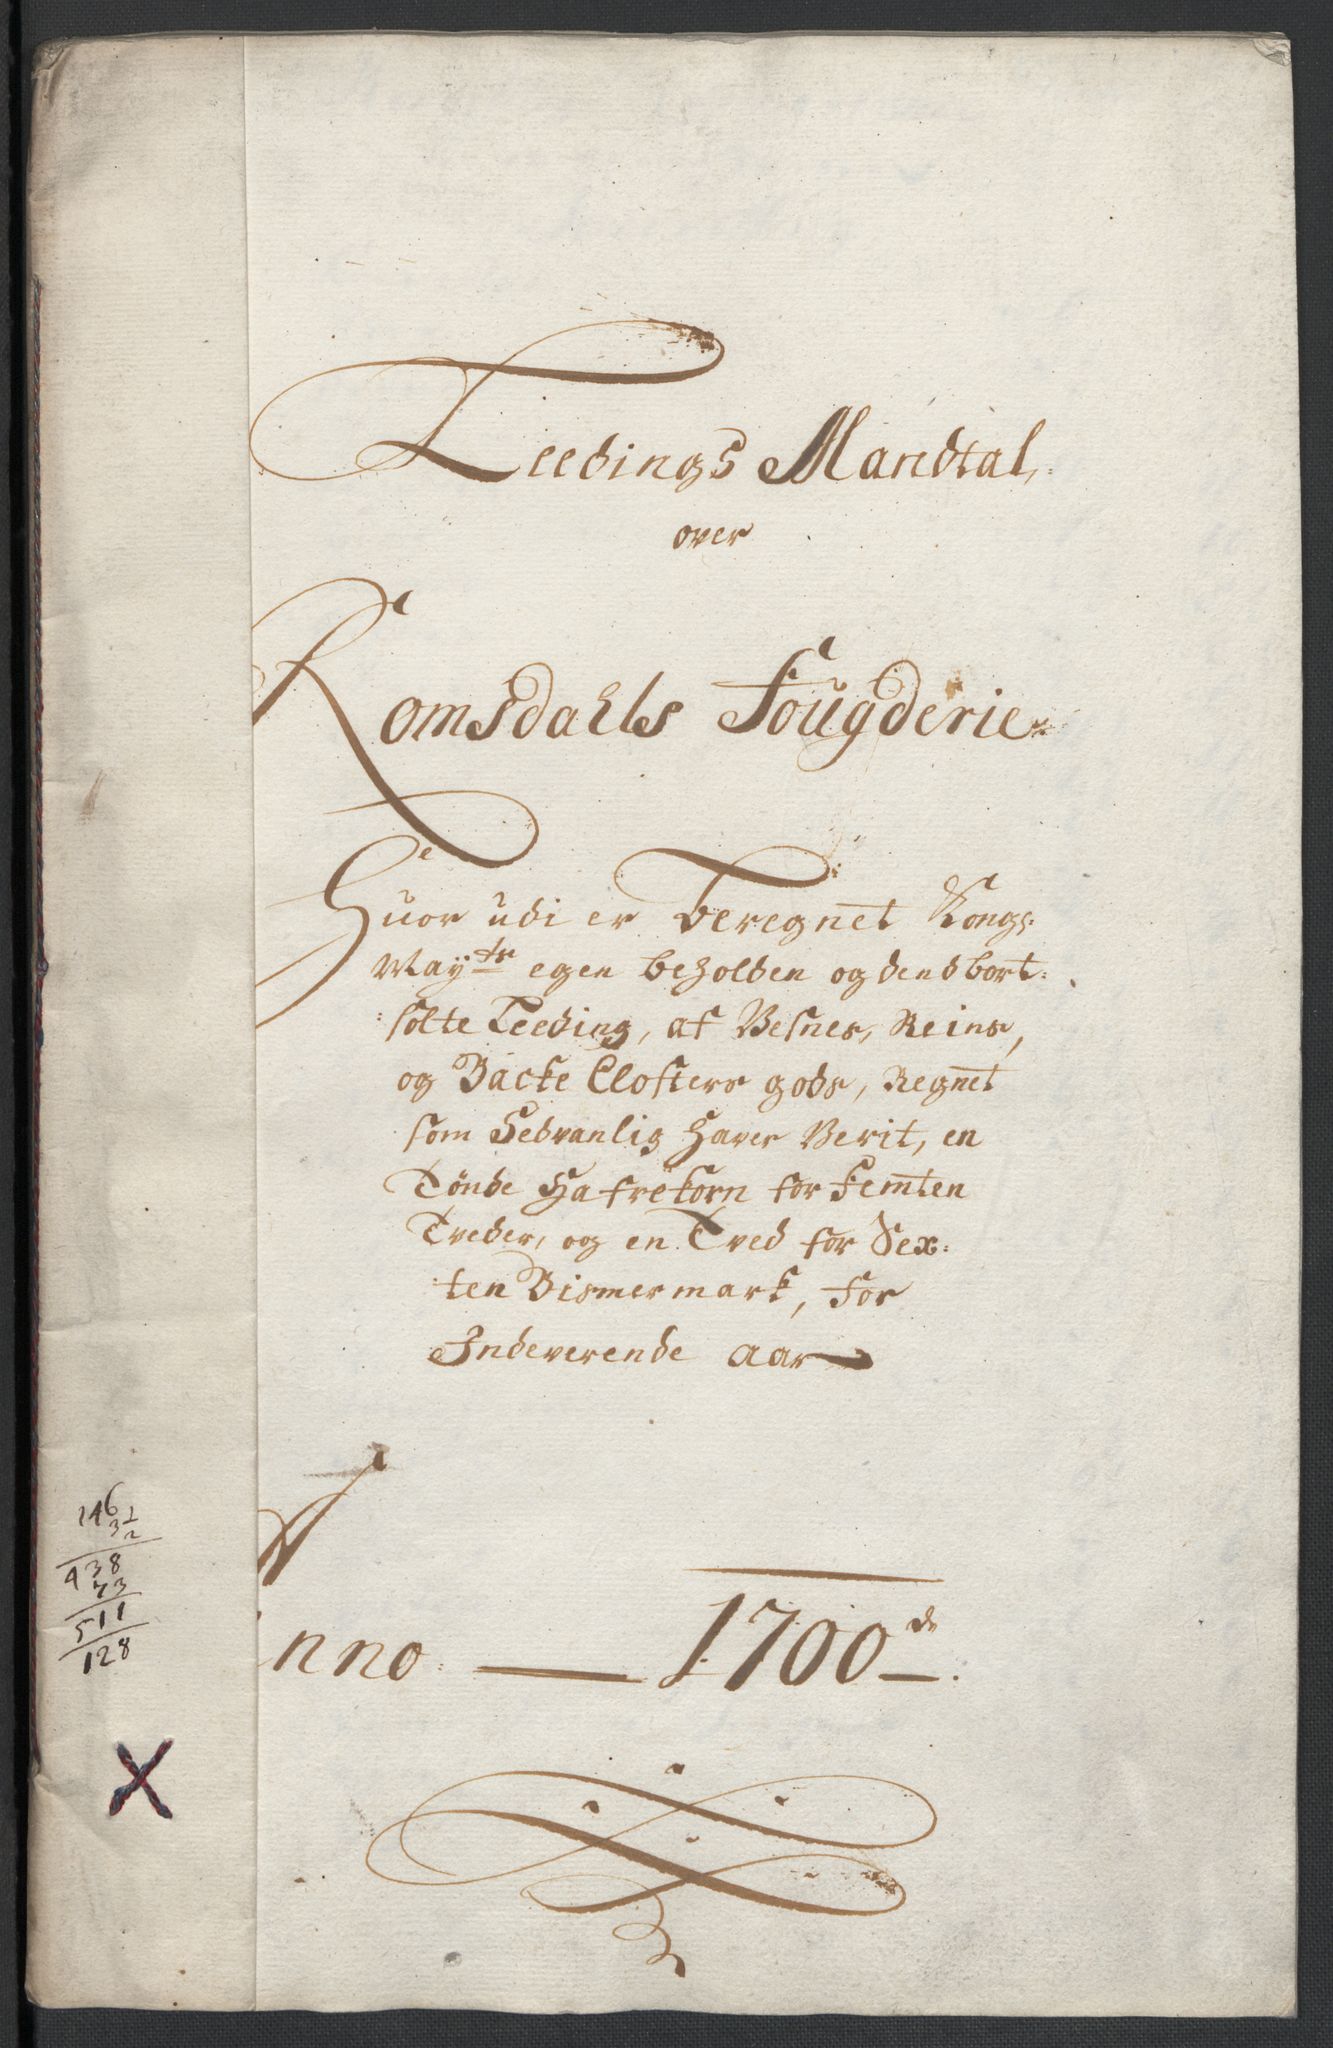 Leedings Mandtal,
over
Romsdahls Fougderie
Huor udi er Beregnet Kongs:
May:ts egen beholden og dend bort:
:solte Leeding, af Vesnes, Reins,
og Backe Closters gods, Regnet
som Sedvanlig Haver Verit, en
Tönde Hafrekorn for Femten
Tveder, og en Tved for Sex:
:ten Bismermark, for
Indeverende aar
Anno 1700de
146
3 1/2
438
73
511
128